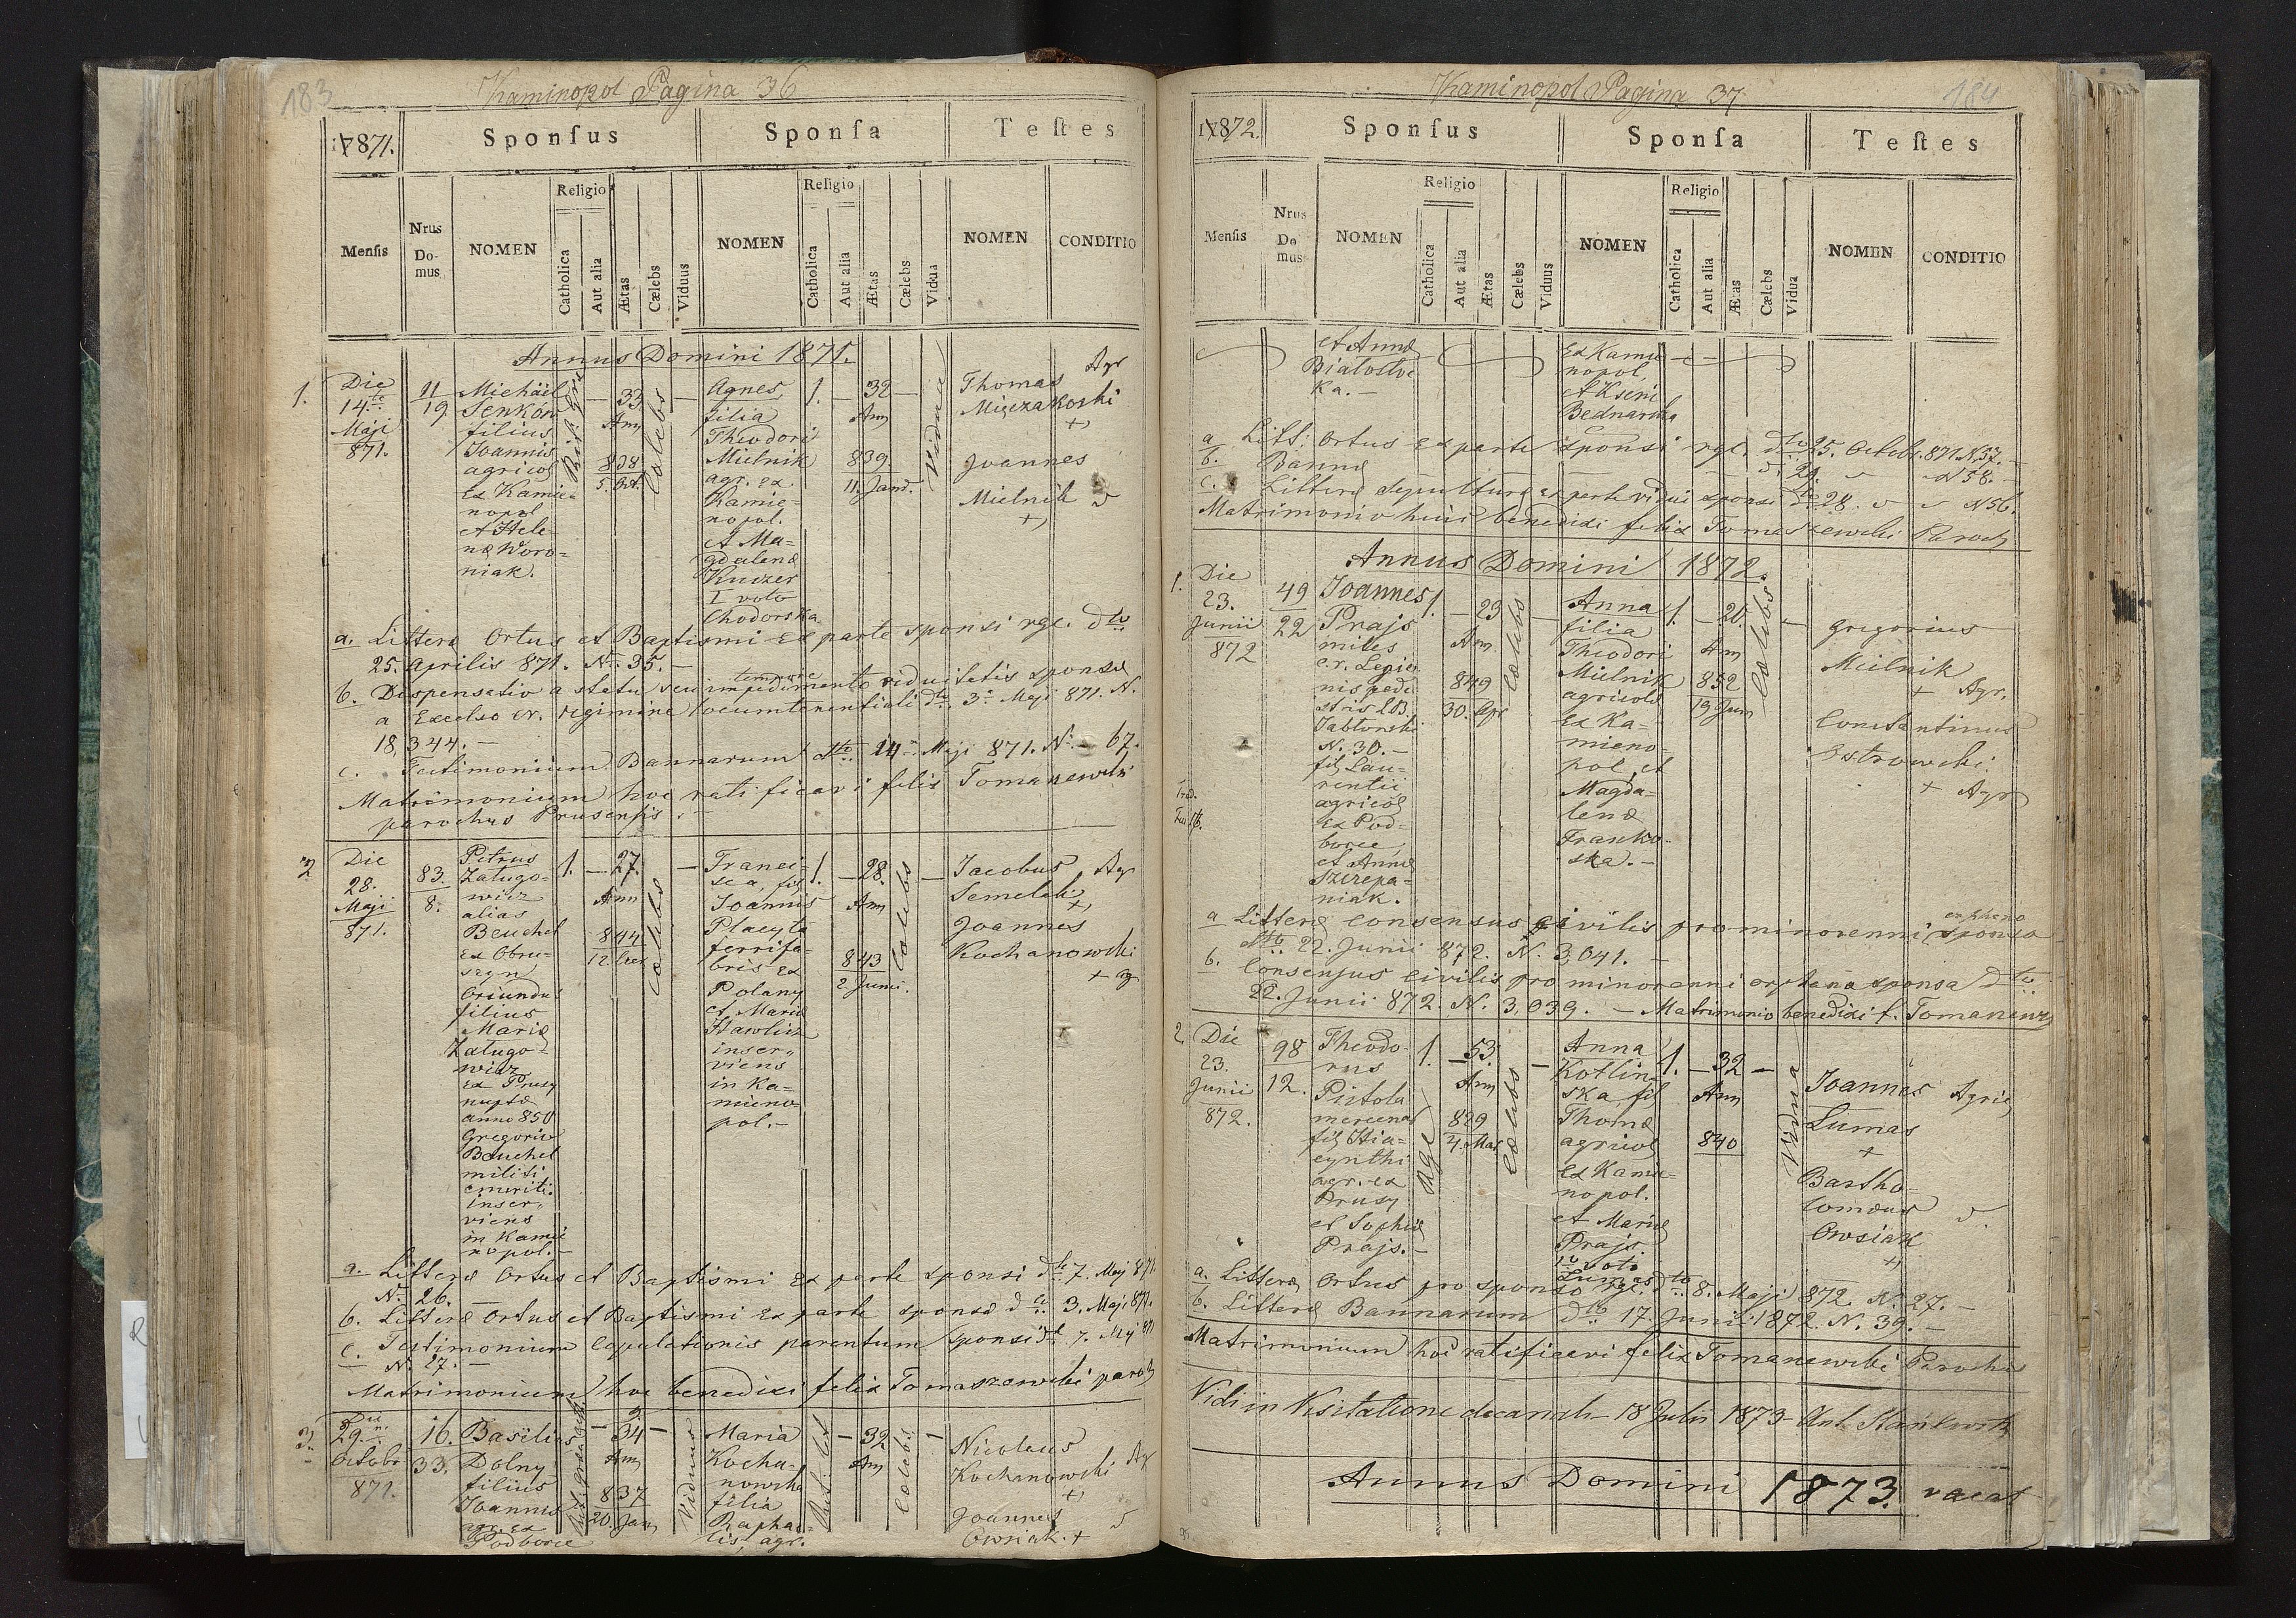 183
Kaminopol Pagina 36
1871.
Sponsus
Sponsa
Testes
Mensis
Nrus Domus
NOMEN
Religio
Catholica
Aut alia
Ætas
Cælebs
Viduus
NOMEN
Religio
Catholica
Aut alia
Ætas
Cælebs
Vidua
NOMEN
CONDITIO
Annus Domini 1871.
1.
Die
14.
Maji
871.
11
19
Michäel
Senków
filius
Joannis
agricol
Ex Kamie=
nopol
et Hele=
næ Woro=
niak.
33
Ann
838
5. Oct.
Cœlebs
Agnes
filia
Theodori
Mielnik
agr. ex
Kamie=
nopol.
et Ma=
gdalenæ
Kuczer
I voto
Chodorska
1.
32
Ann
839
11. Janu.
Vidua
Thomas
Agr
Joannes
Mielnik
+
a. Litteræ Ortus et Baptismi ex parte sponsi rgc. dto
25. Aprilis 871. No 35. –
b. Dispensatio a statu seu impedimento viduitatis sponsæ
a Excelso cr. regimine locumtenentiali dto 3. Maji 871. N.
18,344. –
c. Testimonium Bannarum dto 14 Maji 871. N. 67.
Matrimonium hoc ratificavi felix Tomaszewski
parochus Prusensis. –
2
Die
28.
Maji
871.
83.
8.
Petrus
Zatugo=
wicz
alias
Beuchel
ex Obro=
szyn
Oriundus
filius
Mariæ
Zatugo=
wicz
ex Prusy
nuptæ
anno 850
Gregorio
Beuchel
militi
emeriti.
inser=
viens
in Kamie
nopol. –
1.
27.
Ann
844
Cœlebs
Franci=
sca, fil
Joannis
Placyta
ferrifa=
bris ex
Polany
et Mariæ
Hawlicz
inser=
viens
in Ka=
mieno=
pol. –
1.
28.
Ann
843
2. Junii.
Cœlebs
Jacobus
Agr
+
Joannes
Kochanowski
+
a. Litteræ Ortus et Baptismi ex parte sponsi dto 7. Maj 871
No 26. –
b. Litteræ Ortus et Baptismi ex parte sponsæ d 3. Maji 871.
c. Testimonium Copulationis parentum sponsi d 7. Maj 871
N. 27. –
Matrimonium hoc benedixi felix Tomaszewski paroch
3.
Die
29.
Octobr
871.
16.
33.
Basilius
Dolny
filius
Joannis
agr. ex
Podborce
34
Ann
837
20. Jan
Viduus
Maria
Kocha=
nowska
filia
Rapha=
lis, agr.
32
Ann
Cœlebs
Nicolaus
Kochanowski
Agr
+
Joannes
Owsiak. +
184
Kaminopol Pagina 37
1872.
Sponsus
Sponsa
Testes
Mensis
Nrus Domus
NOMEN
Religio
Catholica
Aut alia
Ætas
Cælebs
Viduus
NOMEN
Religio
Catholica
Aut alia
Ætas
Cælebs
Vidua
NOMEN
CONDITIO
et Annæ
Ka. –
Ex Kamie
nopol
et Kseni
Bednarska
a Litt: Ortus ex parte sponsi rgc. dto 25. Octob. 871. N. 37. –
b. Bannæ 28. N 58. –
c. Litteræ sepulturæ ex parte vidui sponsi dto 28. N 56.
Matrimonio huic benedixi felix Tomaszewski Paroch
Annus Domini 1872.
1.
Die
23.
Junii
872
49
22
Joannes
Prajs
miles
c. r. Legio
nis pede
stris
N. 30. –
fil Lau=
rentii
agricol
ex Pod=
borce,
et Annæ
Szczepa=
niak.
1.
23
Ann
849
30. Apr
Cœlebs
Anna
filia
Theodori
Mielnik
agricolæ
ex Ka=
mieno=
pol, et
Magda=
lenæ
Franko=
ska. –
1.
20.
Ann
852
19 Jun
Cœlebs
Gregorius
Mielnik
+ Agr.
Constantinus
Ostrowski
+ Agr
a Litteræ consensus civilis pro minorenni orphano sponso
dto 22. Junii 872. N. 3,041. –
b. Consensus civilis pro minorenni orphana sponsa dto
22. Junii 872. N. 3,039. – Matrimonio benedixi f. Tomaszew
2.
Die
23.
Junii
872.
98
12.
Theodo=
rus
Pistola
mercena
fil Hia=
cynthi
agr. ex
Prusy
et Sophiæ
Prajs. –
1.
53.
Ann
829
4. Mar
Cœlebs
Anna
Kotlin=
ska, fil
Thomæ
agricol
ex Kamie=
nopol.
et Mariæ
Prajs.
1o voto
Lumas
1.
32
Ann
840
Vidua
Joannes
Lumas
Agric
+
Bartho=
lomæus
Owsiak
+
a. Litteræ Ortus pro sponso rgc. dto 8. Maji 872. N. 27. –
b. Litteræ Bannarum dto 17. Junii 1872. N. 39. –
Matrimonium hoc ratificavi felix Tomaszewski Parochus
Vidi in Visitatione decanali 18 Julii 1873
Annus Domini 1873. vacat